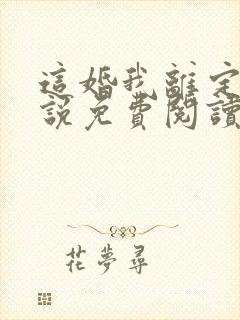 這婚我離定
說免費閱讀
花夢尋